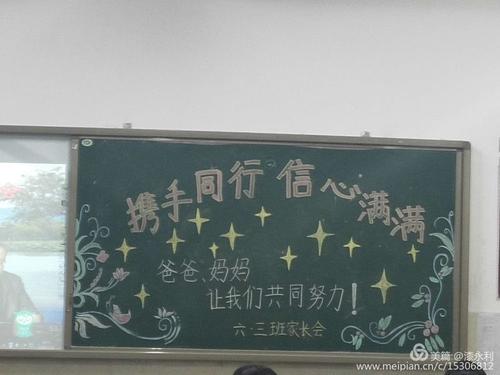 携手同行 信心满满
爸爸、妈妈
让我们共同努力！
六·三班家长会
美篇@漆永利
www.meipian.cn/c/15306812